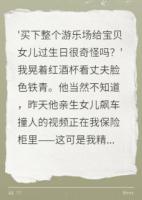 '买下整个游乐场给宝贝
女儿过生日很奇怪吗？'
我晃着红酒杯看丈夫脸
色铁青。他当然不知道
，昨天他亲生女儿飙车
撞人的视频正在我保险
柜里——这可是我精...